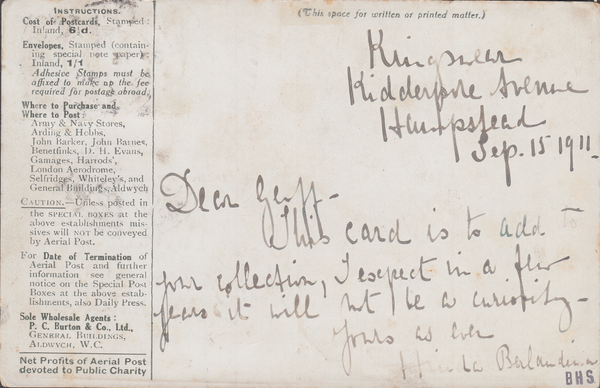 INSTRUCTIONS.
Cost of Postcards, Stamped:
Inland, 6½d.
Envelopes, Stamped (contain-
ing special note paper):
Inland, 1/1
Adhesive Stamps must be
affixed to make up the fee
required for postage abroad.
Where to Purchase and
Where to Post:
Army & Navy Stores,
Arding & Hobbs,
John Barker, John Barnes,
Benetfinks, D. H. Evans,
Gamages, Harrods',
London Aerodrome,
Selfridges, Whiteley's, and
General Buildings, Aldwych
CAUTION.—Unless posted in
the SPECIAL BOXES at the
above establishments mis-
sives will NOT be conveyed
by Aerial Post.
For Date of Termination of
Aerial Post and further
information see general
notice on the Special Post
Boxes at the above estab-
lishments, also Daily Press.
Sole Wholesale Agents:
P. C. Burton & Co., Ltd.,
GENERAL BUILDINGS,
ALDWYCH, W.C.
Net Profits of Aerial Post
devoted to Public Charity
(This space for written or printed matter.)
Kingswear
Kidderpore Avenue
Hampstead
Sep. 15 1911.
Dear Geoff-
This card is to add to
your collection, I expect in a few
years it will not be a curiosity-
Yours as ever
BHS